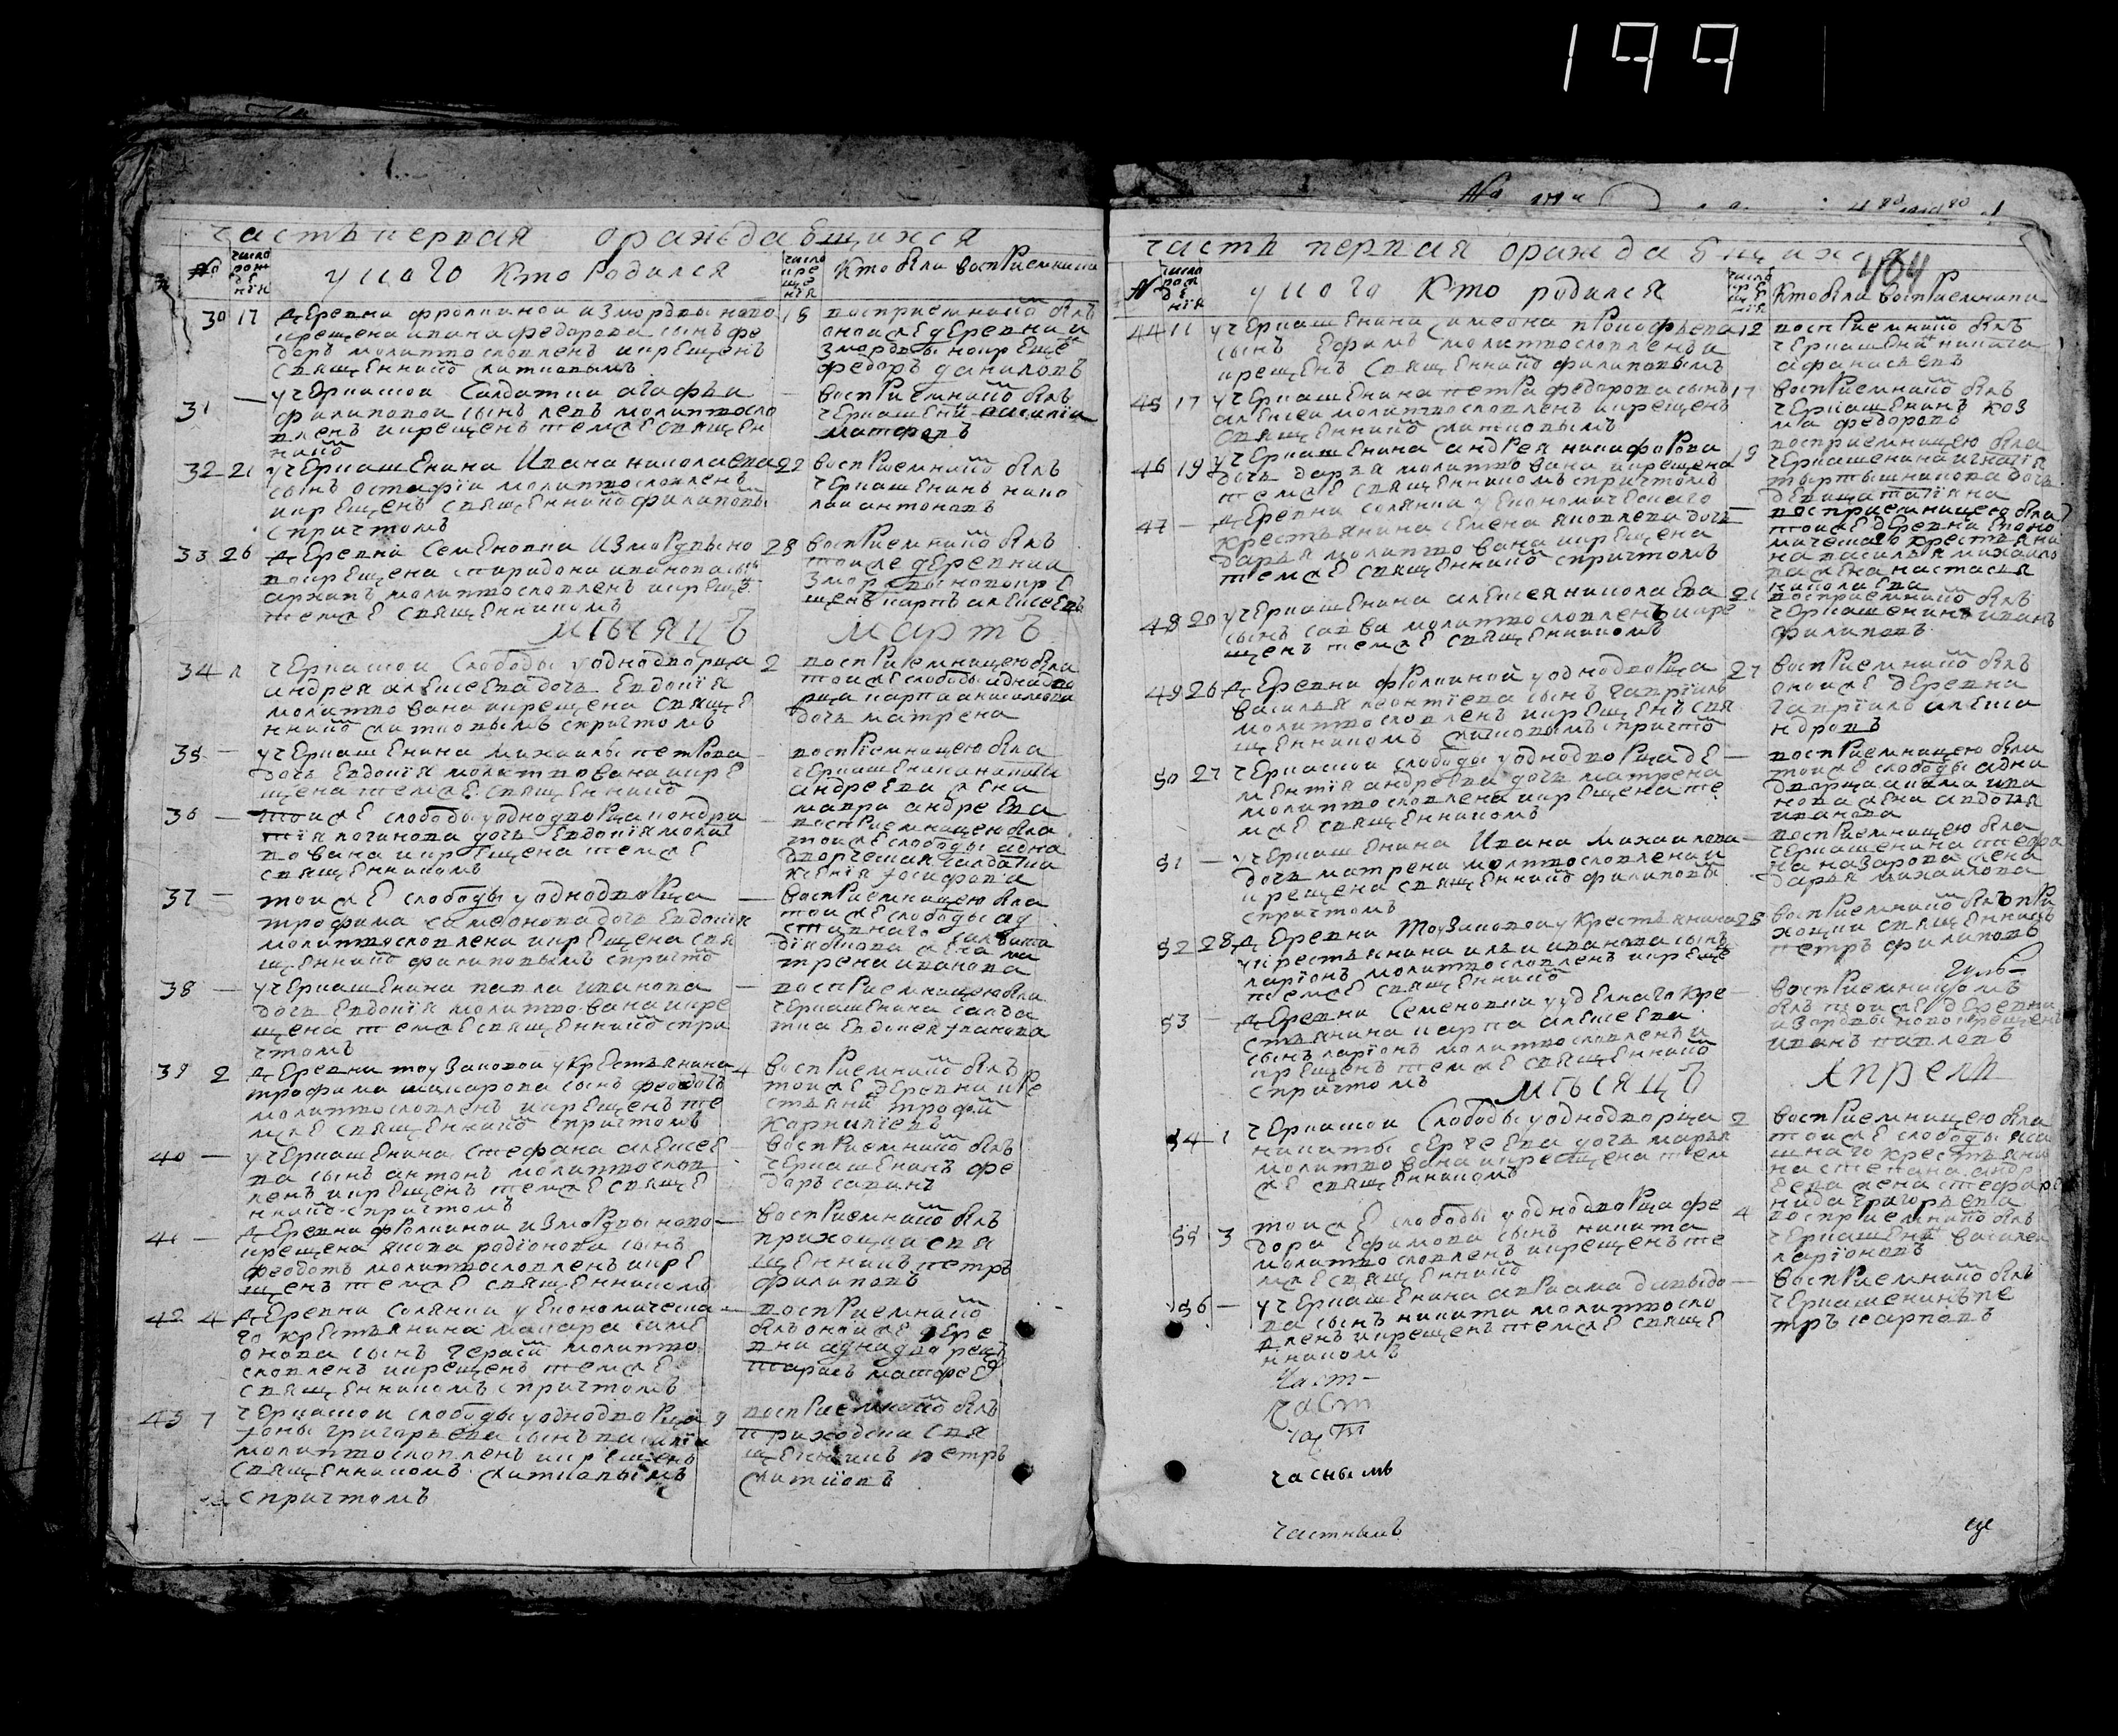 199
часть первая о раждающихся
№
число рождения
у кого кто родился
число крещения
кто были восприемники
30 17 деревни фролкиной измордвы ново
крещена ивана федорова сынъ фе
доръ молитвословленъ и крещенъ
священнико житковымъ
18 восприемнико былъ
оной же деревни и
змордвы новокреще
федоръ даниловъ
31 — у черкаской салдатки агафьи
филиповой сынъ левъ молитвосло
вленъ и крещенъ темже священ
нико
— восприемнико былъ
черкашени василіи
матфеевъ
32 21 у черкашенина ивана николаева
сынъ остафіи молитвословленъ
и крещенъ священнико филиповы
спричтомъ
22 восприемнико былъ
черкашенинъ нико
лаи антоновъ
33 26 деревни семеновки измордвы но
вокрещена спиридона иванова сынъ
архипъ молитвословленъ и креще
темже священникомъ
28 восприемнико былъ
тоиже деревни и
змордвы новокре
щенъ карпъ алексеевъ
мѣсяцъ мартъ
34 черкаской слободы у однодворца
андрея алексеева дочь евдокія
молитвована и крещена свяще
ннико житковымъ спричтомъ
2 восприемницею была
тоиже слободы однодво
рца карпа анисимова
дочь матрена
35 — у черкашенина михаилы петрова
дочь евдокія молитвована и кре
щена темже священнико
— восприемницею была
черкашенина николаи
андреева жена
мавра андреева
36 — тоиже слободы у однодворца кондра
тія логинова дочь евдокія молит
вована и крещена темже
священникомъ
— восприемницею была
тоиже слободы одно
дворческая салдатка
ксенія іосифова
37 — тоиже слободы у однодворца
трофима самсонова дочь евдокія
молитвословлена и крещена свя
щеннико филиповымъ спричто
— восприемницею была
тоиже слободы от
ставнаго салдата
жена ма
трена иванова
38 — у черкашенина павла иванова
дочь евдокія молитвована и кре
щена темже священнико спри
чтомъ
— восприемницею была
черкашенина салда
тка евдокея иванова
39 2 деревни моузаковой у крестьянина
трофима макарова сынъ феодотъ
молитвословленъ и крещенъ те
мже священнико спричтомъ
4 восприемнико былъ
тоиже деревни кре
стьяни трофи
карниліевъ
40 — у черкашенина стефана алексее
ва сынъ антонъ молитвослов
ленъ и крещенъ темже священ
ннико спричтомъ
восприемнико былъ
черкашенинъ фе
доръ савинъ
41 — деревни фролкиной измордвы ново
крещена якова родіонова сынъ
феодотъ молитвословленъ и кре
щенъ темже священникомъ
— восприемнико былъ
приходски свя
щенникъ петръ
филиповъ
42 4 деревни солянки у економическа
го крестьянина макара симе
онова сынъ гераси молитво
словленъ и крещенъ темже
священникомъ спричтомъ
— восприемнико
былъ оноиже дере
вни аднадворецъ
тарасъ матфее
43 7 черкаской слободы у однодворца
іоны григорьева сынъ василіи
молитвословленъ и крещенъ
священникомъ житковымъ
спричтомъ
9 восприемнико былъ
приходски свя
щенникъ петръ
житковъ
часть первая о раждающихся
464
№
число рождения
у кого кто родился
число крещения
кто были восприемники
44 11 у черкашенина симеона прокофьева
сынъ ефимъ молитвословленъ и
крещенъ священнико филиповымъ
12 восприемнико былъ
черкашени никита
афанасьевъ
45 17 у черкашенина петра федорова сынъ
алексеи молитвословленъ и крещенъ
священнико житковымъ
17 восприемнико былъ
черкашенинъ коз
ма федоровъ
46 19 у черкашенина андрея никифорова
дочь дарья молитвована и крещена
темже священникомъ спричтомъ
19 восприемницею была
черкашенина игнатія
мартышникова дочь
девица татіяна
47 — деревни солянки у економическаго
крестьянина семена яковлева дочь
дарья молитвована и крещена
темже священнико спричтомъ
— восприемницею была
тоиже деревни еконо
мическаго крестьяни
на василья михаило
ва жена настасья
николаева
48 20 у черкашенина алексея николаева
сынъ савва молитвословленъ и кре
щенъ темже священникомъ
21 восприемнико былъ
черкашенинъ иванъ
филиповъ
49 26 деревни фролкиной у однодворца
василья леонтіева сынъ гавріилъ
молитвословленъ и крещенъ свя
щенникомъ житковымъ спричто
27 восприемнико былъ
оноиже деревни
гавріило алекса
ндровъ
50 27 черкаской слободы у однодворца де
ментія андреева дочь матрена
молитвословлена и крещена те
мже священникомъ
— восприемницею была
тоиже слободы одно
дворца акима ива
нова жена авдотья
иванова
51 — у черкашенина ивана михаилова
дочь матрена молитвословлена и
крещена священнико филиповы
спричтомъ
— восприемницею была
черкашенина стефа
на назарова жена
дарья михаилова
52 28 деревни моузаковой у крестьянина
у крестьянина ильи иванова сынъ
ларіонъ молитвословленъ и креще
темже священнико
28 восприемнико былъ при
ходски священникъ
петръ филиповъ
53 — деревни семеновки у уделнаго кре
стьянина карпа алексеева
сынъ ларіонъ молитвословленъ и
крещенъ темже священнико
спричтомъ
восприемникомъ
былъ тоиже деревни
измордвы новокрещенъ
иванъ павловъ
мѣсяцъ апрель
54 1 черкаской слободы у однодворца
никиты сергеева дочь марья
молитвована и крещена тем
же священникомъ
2 восприемницею была
тоиже слободы яса
шнаго крестьяни
на степана андр
еева жена стефа
нида григорьева
55 3 тоиже слободы у однодворца фе
дора ефимова сынъ никита
молитвословленъ и крещенъ те
мже священнико
4 восприемнико былъ
черкашени василеи
ларіоновъ
56 — у черкашенина авраама давыдо
ва сынъ никита молитвосло
вленъ и крещенъ темже свяще
нникомъ
— восприемнико былъ
черкашенинъ пе
тръ карповъ
част—
част
част
часнымъ
частнымъ